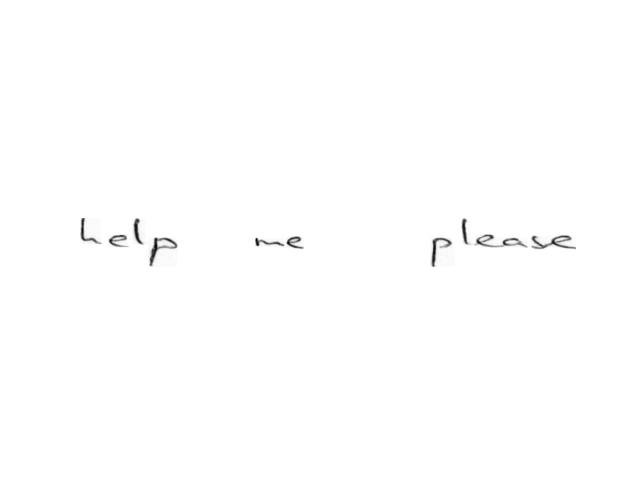 help me please